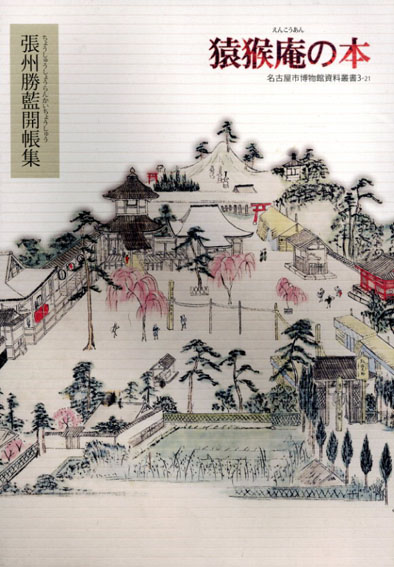 えんこうあん
猿猴庵の本
名古屋市博物館資料叢書3-21
ちょうしゅうしょうらんかいちょうしゅう
張州勝藍開帳集